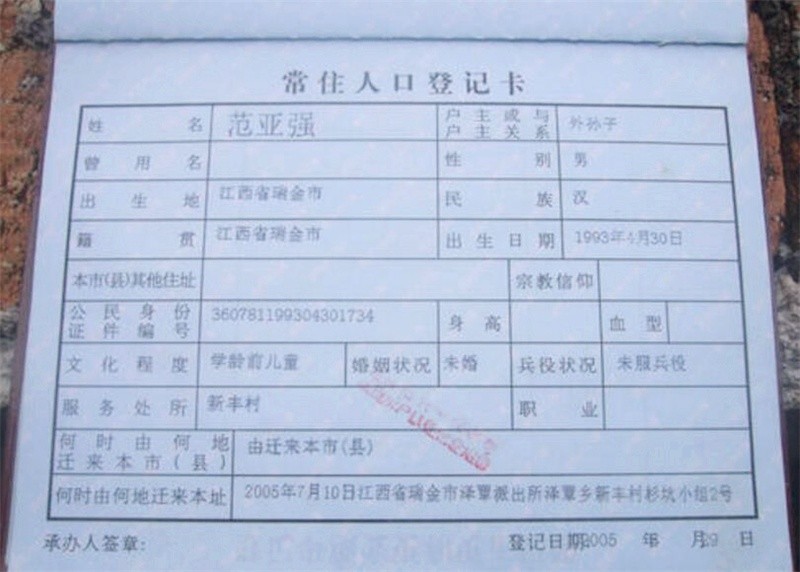 常住人口登记卡
姓名 范亚强 户主或与户主关系 外孙子
曾用名 性别 男
出生地 江西省瑞金市 民族 汉
籍贯 江西省瑞金市 出生日期 1993年4月30日
本市(县)其他住址 宗教信仰
公民身份证件编号 360781199304301734 身高 血型
文化程度 学龄前儿童 婚姻状况 未婚 兵役状况 未服兵役
服务处所 新丰村 职业
何时由何地迁来本市(县) 由迁来本市(县)
何时由何地迁来本址 2005年7月10日江西省瑞金市泽覃派出所泽覃乡新丰村杉坑小组2号
承办人签章: 登记日期:2005 年 月29 日